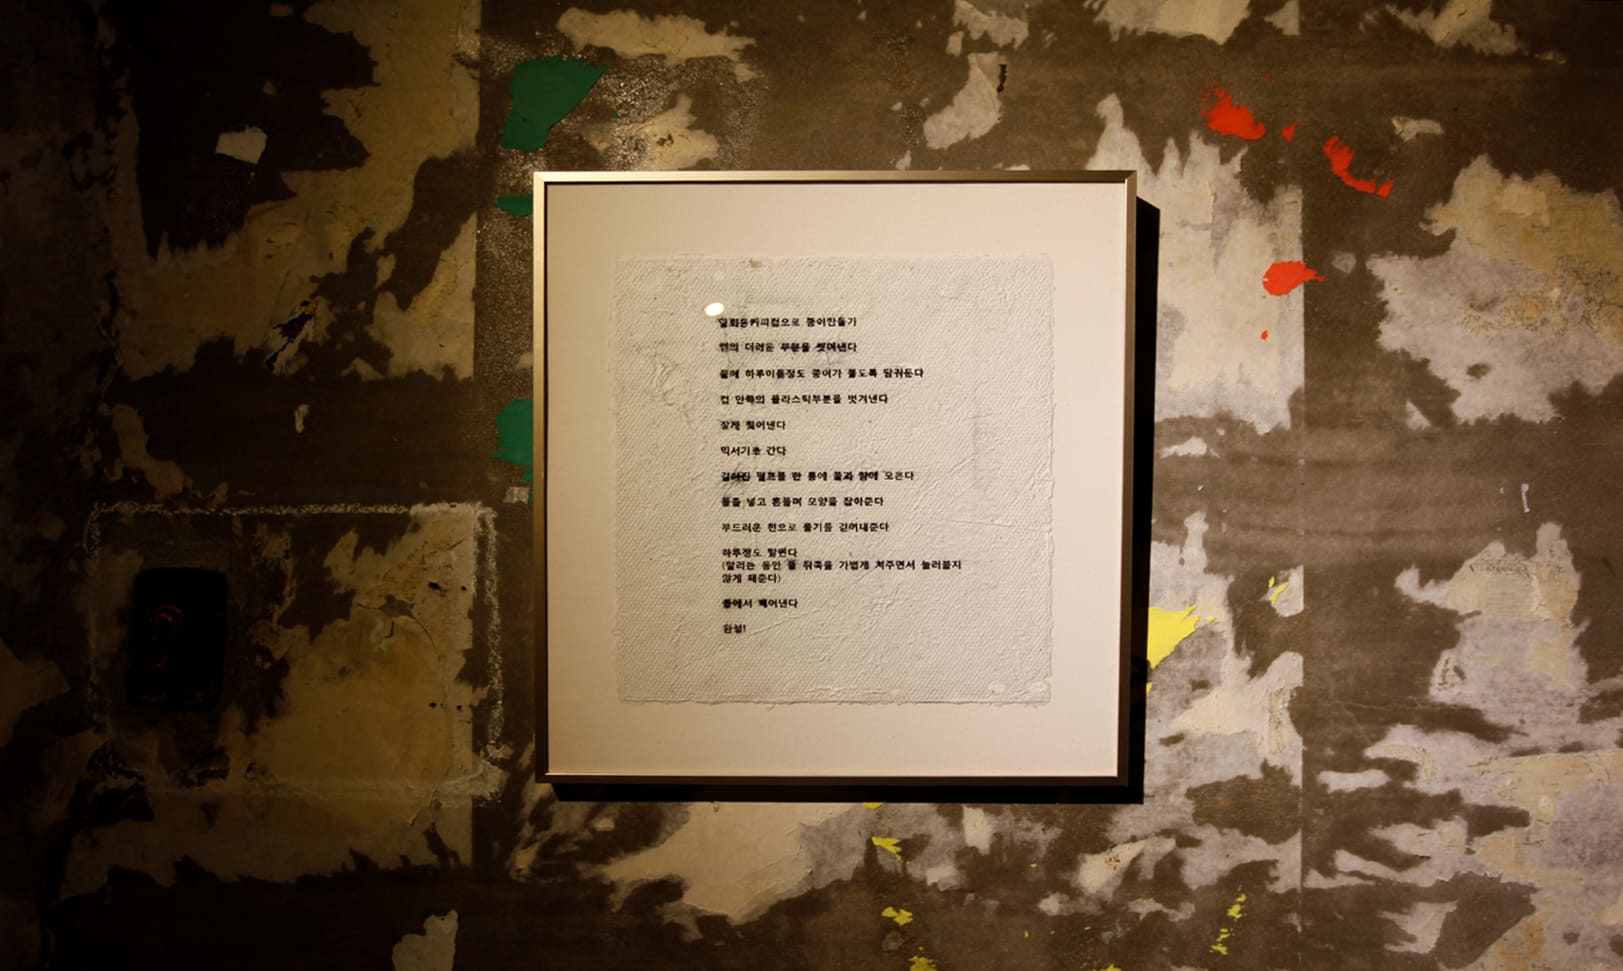 일회용커피컵으로 종이만들기
컵의 더러운 부분을 씻어낸다
물에 하루이틀정도 종이가 불도록 담궈둔다
컵 안쪽의 플라스틱부분을 벗겨낸다
잘게 찢어낸다
믹서기로 간다
갈아진 펄프를 한 통에 물과 함께 모은다
틀을 넣고 흔들며 모양을 잡아준다
부드러운 천으로 물기를 걷어내준다
하루정도 말린다
(말리는 동안 틀 뒤쪽을 가볍게 쳐주면서 눌러붙지
않게 해준다)
틀에서 떼어낸다
완성!